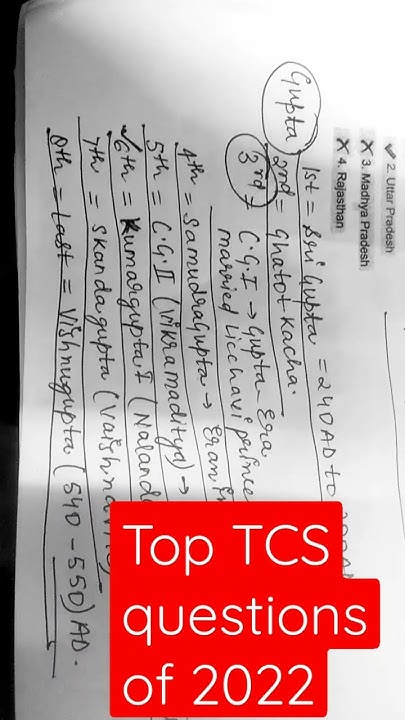 ✓ 2. Uttar Pradesh
✗ 3. Madhya Pradesh
✗ 4. Rajasthan
Gupta
1st = Sri Gupta = 240AD to
2nd = Ghatotkacha.
3rd = C.G.I → Gupta Era
married Licchavi
4th = Samudragupta → Eran
5th = C.G.II (Vikramaditya) →
✓6th = Kumargupta I (
7th = Skandagupta (
8th = Last = Vishnugupta (540-550)AD.
Top TCS
questions
of 2022